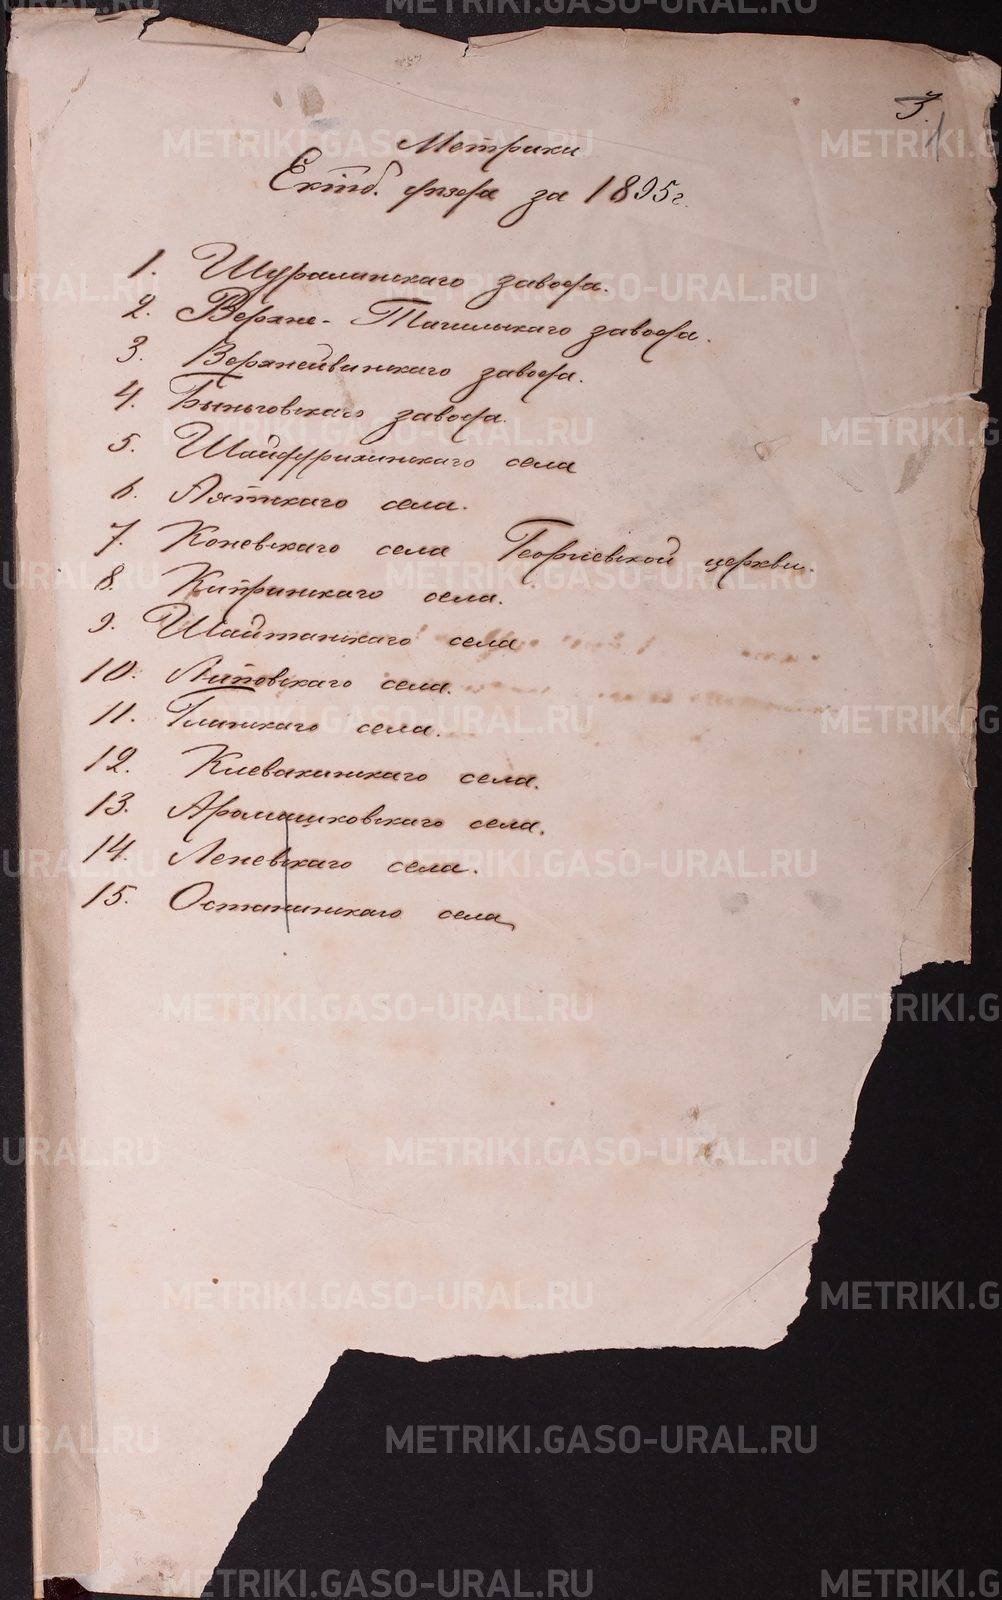 3.
Метрики
Ектб. уѣзда за 1895 г.
1. Шуралинскаго завода.
2. Верхне-Тагильскаго завода.
3. Верхнейвинскаго завода.
4. Быньговскаго завода.
5. Шайдурихинскаго села
6. Аятскаго села.
7. Коневскаго села Георгіевской церкви.
8. Кипринскаго села.
9. Шайтанскаго села
10. Липовскаго села.
11. Глинскаго села.
12. Клевакинскаго села.
13. Арамашковскаго села.
14. Леневскаго села.
15. Останинскаго села
METRIKI.GASO-URAL.RU